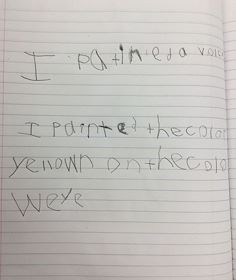 I patinted a vole
I painted thecolor
yenown on thecolo
weye